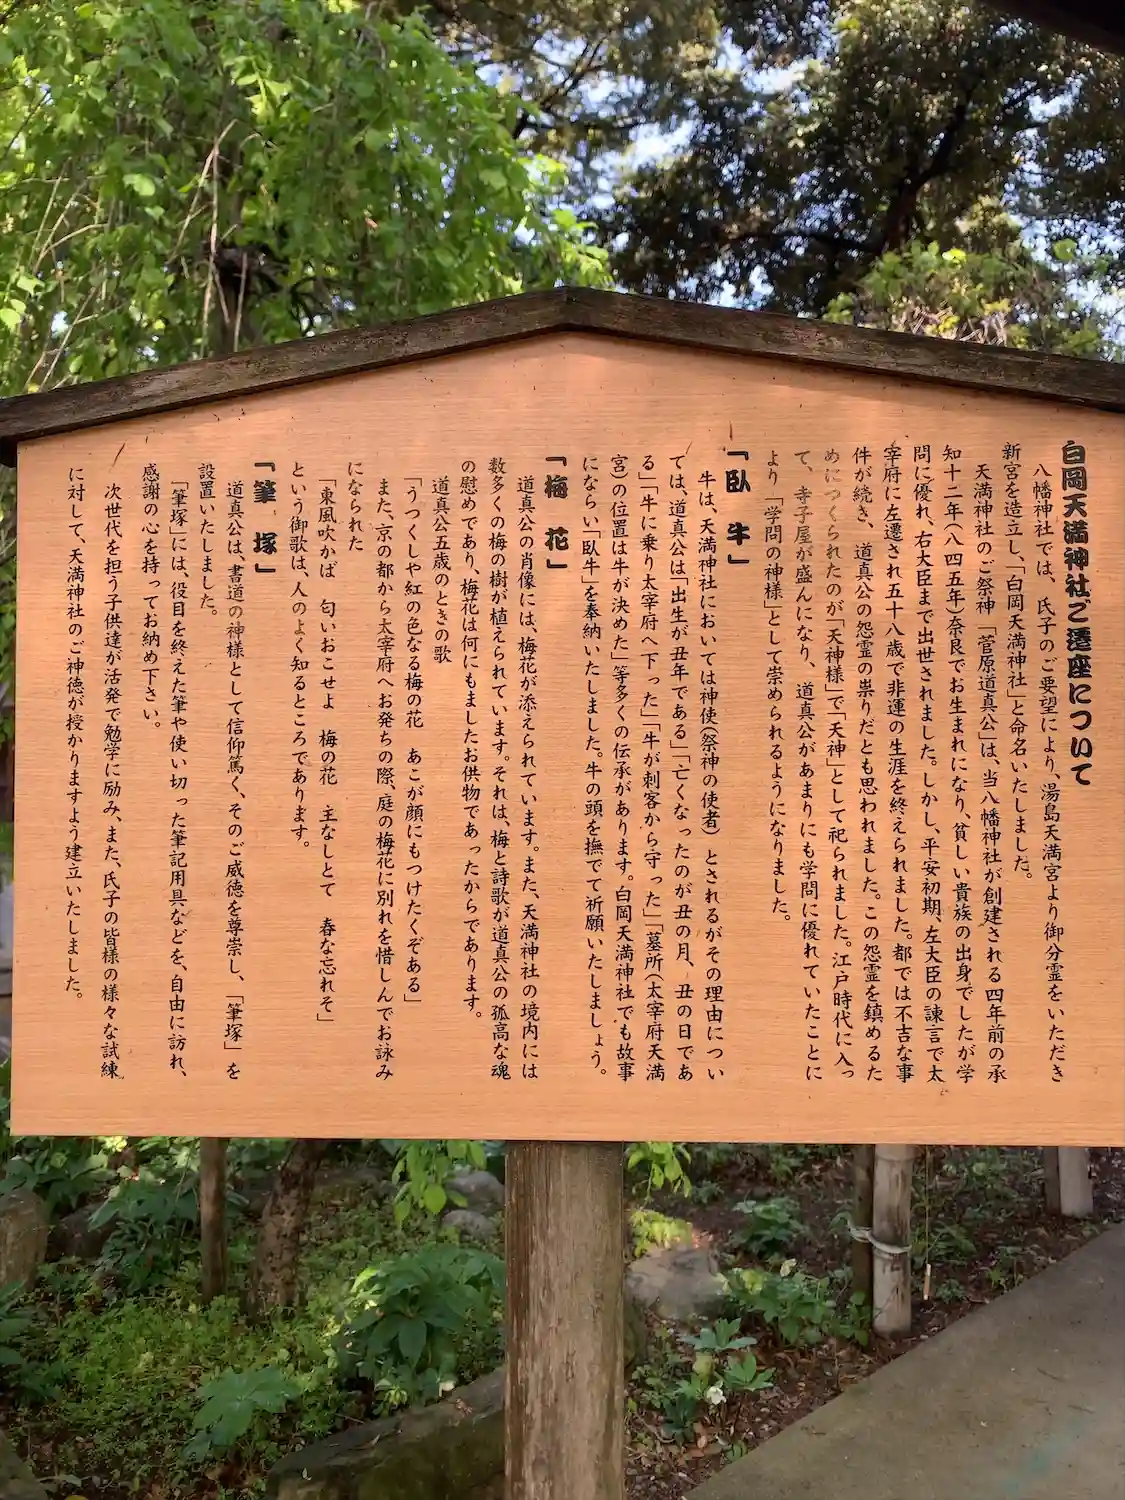 白岡天満神社ご遷座について
八幡神社では、氏子のご要望により、湯島天満宮より御分霊をいただき
新宮を造立し、「白岡天満神社」と命名いたしました。
天満神社のご祭神「菅原道真公」は、当八幡神社が創建される四年前の承
知十二年(八四五年)奈良でお生まれになり、貧しい貴族の出身でしたが学
問に優れ、右大臣まで出世されました。しかし、平安初期、左大臣の諫言で太
宰府に左遷され五十八歳で非運の生涯を終えられました。都では不吉な事
件が続き、道真公の怨霊の祟りだとも思われました。この怨霊を鎮めるた
めにつくられたのが「天神様」で「天神」として祀られました。江戸時代に入っ
て、寺子屋が盛んになり、道真公があまりにも学問に優れていたことに
より「学問の神様」として崇められるようになりました。
「臥　牛」
牛は、天満神社においては神使(祭神の使者)とされるがその理由につい
ては、道真公は「出生が丑年である」「亡くなったのが丑の月、丑の日であ
る」「牛に乗り太宰府へ下った」「牛が刺客から守った」「墓所(太宰府天満
宮)の位置は牛が決めた」等多くの伝承があります。白岡天満神社でも故事
にならい「臥牛」を奉納いたしました。牛の頭を撫でて祈願いたしましょう。
「梅　花」
道真公の肖像には、梅花が添えられています。また、天満神社の境内には
数多くの梅の樹が植えられています。それは、梅と詩歌が道真公の孤高な魂
の慰めであり、梅花は何にもましたお供物であったからであります。
道真公五歳のときの歌
「うつくしや紅の色なる梅の花　あこが顔にもつけたくぞある」
また、京の都から太宰府へお発ちの際、庭の梅花に別れを惜しんでお詠み
になられた
「東風吹かば　匂いおこせよ　梅の花　主なしとて　春な忘れそ」
という御歌は、人のよく知るところであります。
「筆　塚」
道真公は、書道の神様として信仰篤く、そのご威徳を尊崇し、「筆塚」を
設置いたしました。
「筆塚」には、役目を終えた筆や使い切った筆記用具などを、自由に訪れ、
感謝の心を持ってお納め下さい。
次世代を担う子供達が活発で勉学に励み、また、氏子の皆様の様々な試練
に対して、天満神社のご神徳が授かりますよう建立いたしました。